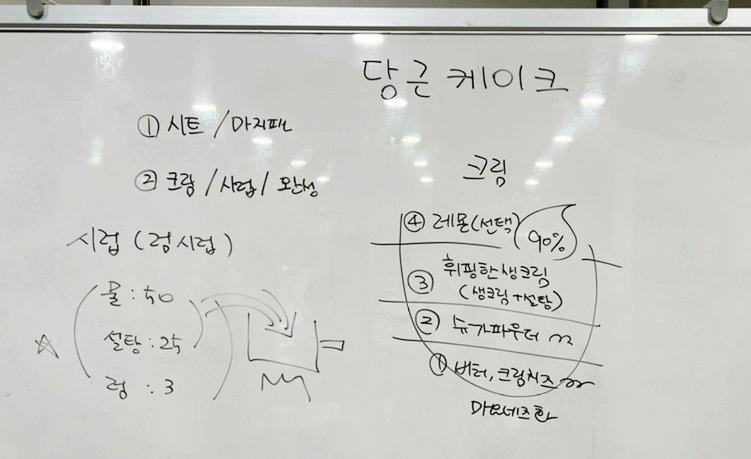 당근 케이크
① 시트 / 마지팬
② 크림 / 시럽 / 완성
시럽 (럼시럽)
물 : 50
☆ 설탕 : 25
럼 : 3
크림
④ 레몬(선택) 90%
③ 휘핑한생크림
(생크림+설탕)
② 슈가파우더
① 버터, 크림치즈
마요네즈화